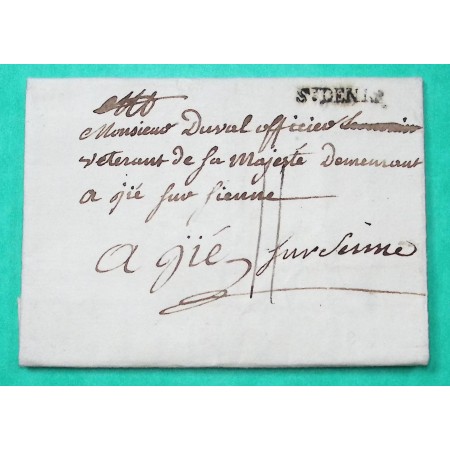 St DENIS
A
Monsieur Duval officier
veterant de sa Majesté Demeurant
a gié sur sienne
11
a gié sur Seinne